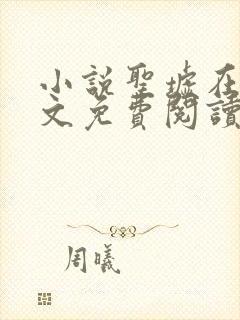 小説聖墟在
文免費閱讀
周曦